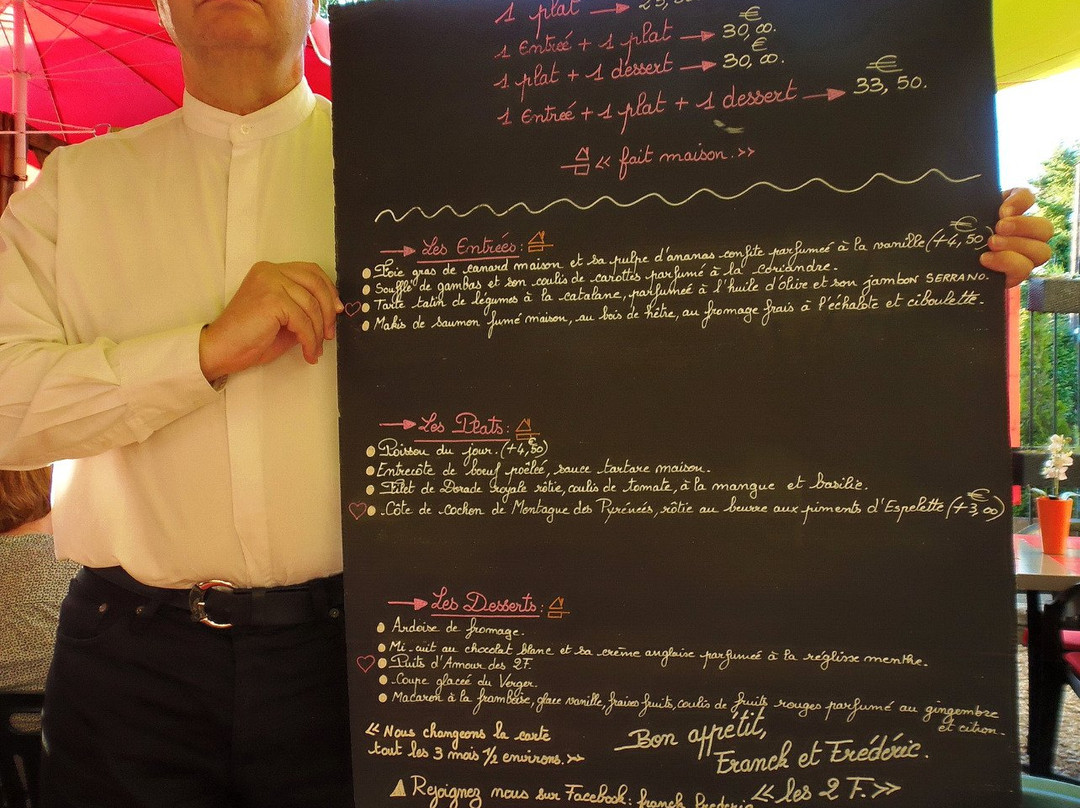 1 plat → 
1 Entreé + 1 plat → 30,00. €
1 plat + 1 dessert → 30,00. €
1 Entreé + 1 plat + 1 dessert → 33,50. €
<< fait maison. >>
→ Les Entrées :
Foie gras de canard maison et sa pulpe d'ananas confite parfumeé à la vanille (+4,50) €
Soufflé de gambas et son coulis de carottes parfumé à la coriandre.
Tarte tatin de légumes à la catalane, parfumeé à l'huile d'olive et son jambon SERRANO.
Makis de saumon fumé maison, au bois de hêtre, au fromage frais à l'échalote et ciboulette.
→ Les Plats :
Poisson du jour. (+4,50) €
Entrecôte de boeuf poêlée, sauce tartare maison.
Filet de Dorade royale rôtie, coulis de tomate, à la mangue et basilic.
Côte de cochon de Montagne des Pyrénées, rôtie au beurre aux piments d'Espelette (+3,00) €
→ Les Desserts :
Ardoise de fromage.
Mi-cuit au chocolat blanc et sa crème anglaise parfumeé à la réglisse menthe.
Puits d'Amour des 2F.
Coupe glaceé du Verger.
Macaron à la framboise, glace vanille, fraises fruits, coulis de fruits rouges parfumé au gingembre
et citron.
<< Nous changeons la carte
tout les 3 mois 1/2 environs. >>
Bon appétit,
Franck et Frédéric.
<< les 2 F. >>
Rejoignez nous sur Facebook : franck frederic